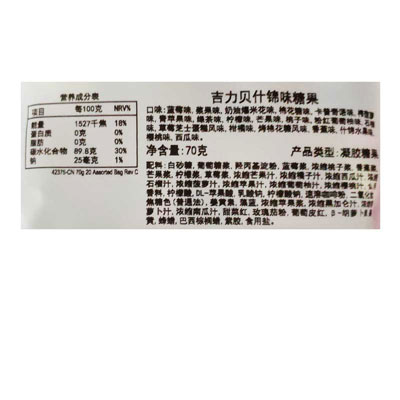 营养成分表
项目 每100克 NRV%
能量 1527千焦 18%
蛋白质 0克 0%
脂肪 0克 0%
碳水化合物 89.8克 30%
钠 25毫克 1%
42375-CN 70g 20 Assorted Bag Rev C
吉力贝什锦味糖果
口味：蓝莓味，浆果味，奶油爆米花味，棉花糖味，卡普香迪味，梅菠
味，青苹果味，绿茶味，柠檬味，芒果味，桃子味，粉红葡萄柚味，石榴
味，草莓芝士蛋糕风味，柑橘味，烤棉花糖风味，香蕉味，什锦水果味
樱桃味，西瓜味。
净含量：70克 产品类型：凝胶糖果
配料：白砂糖，葡萄糖浆，羟丙基淀粉，蓝莓浆，浓缩桃子浆，香蕉浆
芒果浆，柠檬浆，草莓浆，浓缩芒果汁，浓缩橘子汁，浓缩西瓜汁
石榴汁，浓缩菠萝汁，浓缩苹果汁，浓缩葡萄柚汁，浓缩樱桃汁
香料，柠檬酸，DL-苹果酸，乳酸钙，柠檬酸钠，速溶咖啡粉，二氧化
焦糖色（普通法），姜黄素，藻蓝，浓缩苹果浆，浓缩黑加仑汁
萝卜汁，浓缩南瓜汁，甜菜红，玫瑰茄粉，葡萄皮红，β-胡萝卜
粉，蜂蜡，巴西棕榈蜡，紫胶，食用盐。